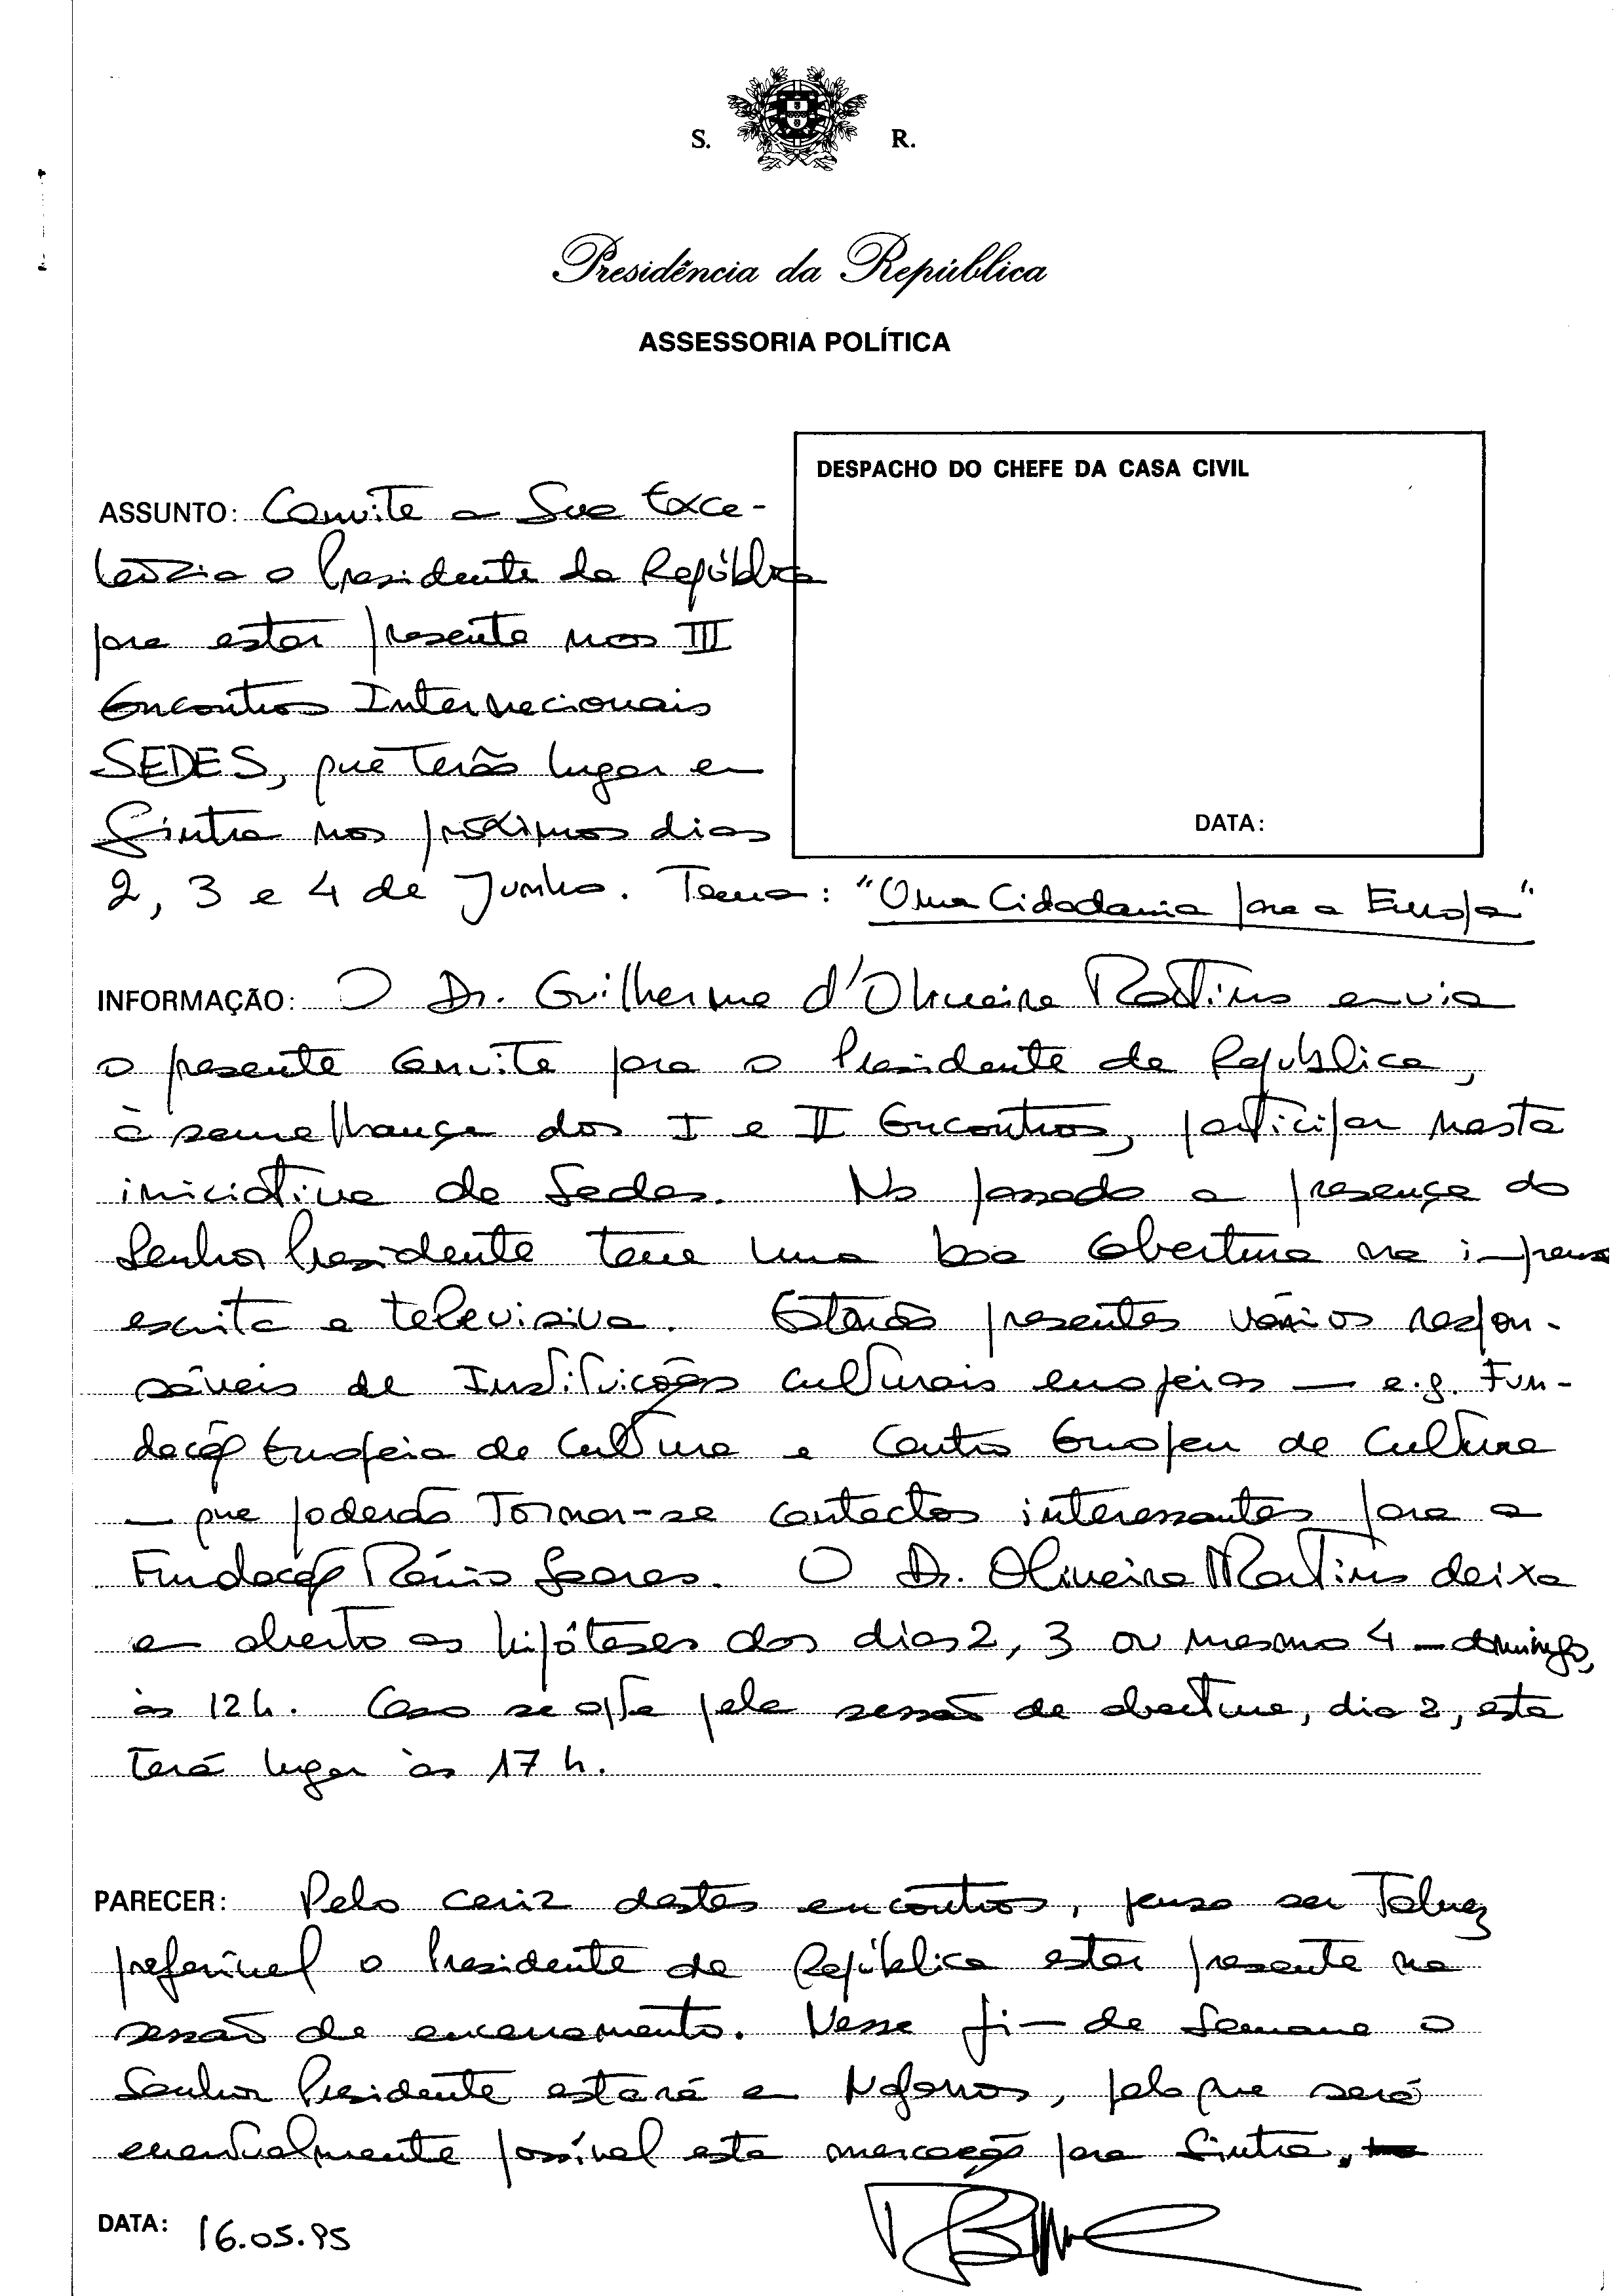 S. R.
Presidência da República
ASSESSORIA POLÍTICA
DESPACHO DO CHEFE DA CASA CIVIL
DATA:
ASSUNTO: Convite a Sua Exce-
lência o Presidente da República
para estar presente nos III
Encontros Internacionais
SEDES, que terão lugar em
Sintra nos próximos dias
2, 3 e 4 de Junho. Tema: "Uma Cidadania para a Europa"
INFORMAÇÃO: O Dr. Guilherme d'Oliveira Martins envia
o presente convite para o Presidente da República,
à semelhança dos I e II Encontros, participar nesta
iniciativa da Sedes. No passado a presença do
Senhor Presidente teve uma boa cobertura na imprensa
escrita e televisiva. Estarão presentes vários respon-
sáveis de Instituições culturais europeias — e.g. Fun-
dação Europeia de Cultura e Centro Europeu de Cultura
— que poderão tornar-se contactos interessantes para a
Fundação Mário Soares. O Dr. Oliveira Martins deixa
em aberto as hipóteses dos dias 2, 3 ou mesmo 4 — domingo,
às 12h. Caso se opte pela sessão de abertura, dia 2, esta
terá lugar às 17 h.
PARECER: Pelo cariz destes encontros, penso ser talvez
preferível o Presidente da República estar presente na
sessão de encerramento. Nesse fim-de Semana o
Senhor Presidente estará em Nafarros, pelo que será
eventualmente possível esta marcação para Sintra.
DATA: 16.05.95